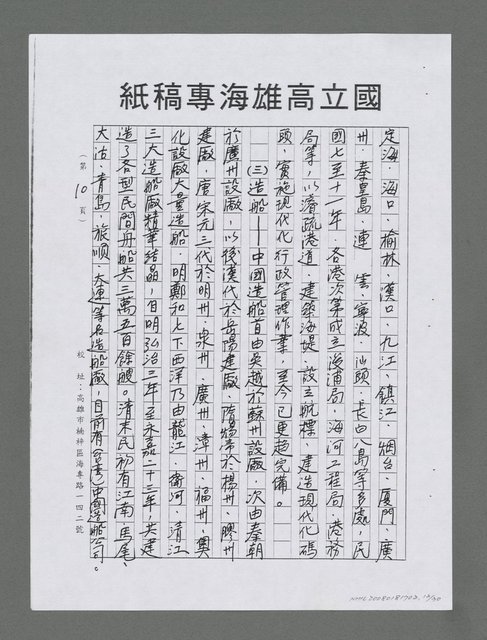 國立高雄海專稿紙
定海、海口、榆林、漢口、九江、鎮江、烟台、厦門、廣
州、秦皇島、連雲、寧波、汕頭、長白八島等多處，民
國七至十一年，各港次第成立浚浦局、海河工程局、港務
局等，以濬疏港道，建築海堤，設立航標，建造現代化碼
頭，實施現代化行政管理作業，至今已更趨完備。
(三)造船——中國造船首由吳越於蘇州設廠，次由秦朝
於廣州設廠，以後漢代於岳陽建廠，隋煬帝於楊州、膠州
建廠，唐宋元三代於明州、泉州、廣州、漳州、福州、興
化設廠大量造船，明鄭和七下西洋乃由龍江、衛河、清江
三大造船廠精華結晶，自明弘治三年至永嘉二十三年，共建
造了各型民間舟船共三萬五百餘艘。清末民初有江南、馬尾、
大沽、青島、旅順、大連等名造船廠，目前有(台灣)中國造船公司。
(第10頁)
校址：高雄市楠梓區海專路一四二號
NMHL20080181702. 10/30